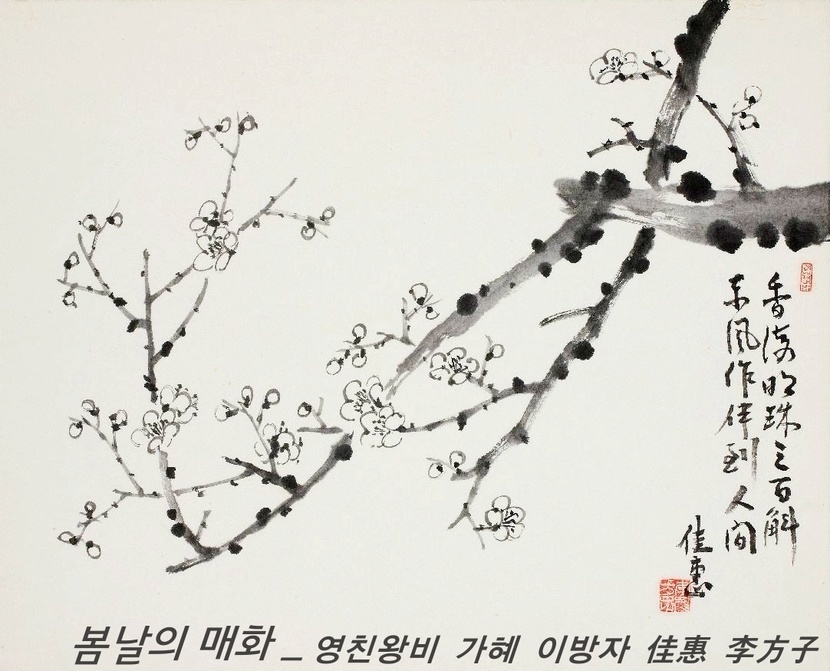 香海明珠三百斛
東風作伴到人間
佳惠
봄날의 매화 _ 영친왕비 가혜 이방자 佳惠 李方子